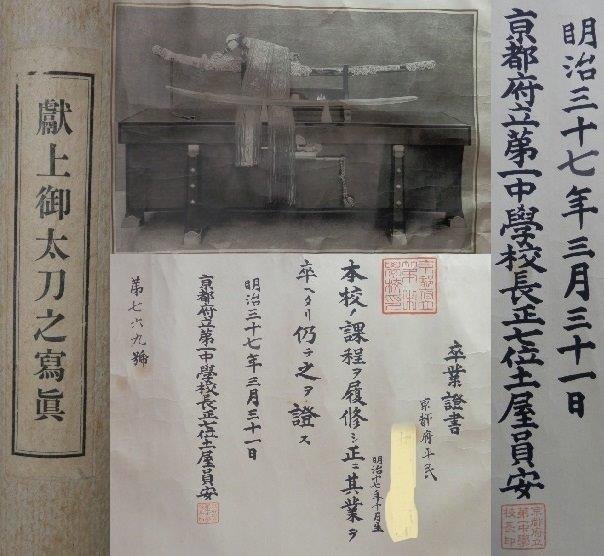 獻上御太刀之寫眞
卒業證書
京都府平民
明治十七年十月生
本校ノ課程ヲ履修シ正ニ其業ヲ
卒ヘタリ仍テ之ヲ證ス
明治三十七年三月三十一日
京都府立第一中學校長正七位土屋員安
第七六九號
明治三十七年三月三十一日
京都府立第一中學校長正七位土屋員安
京都府立
第一中學
校長印